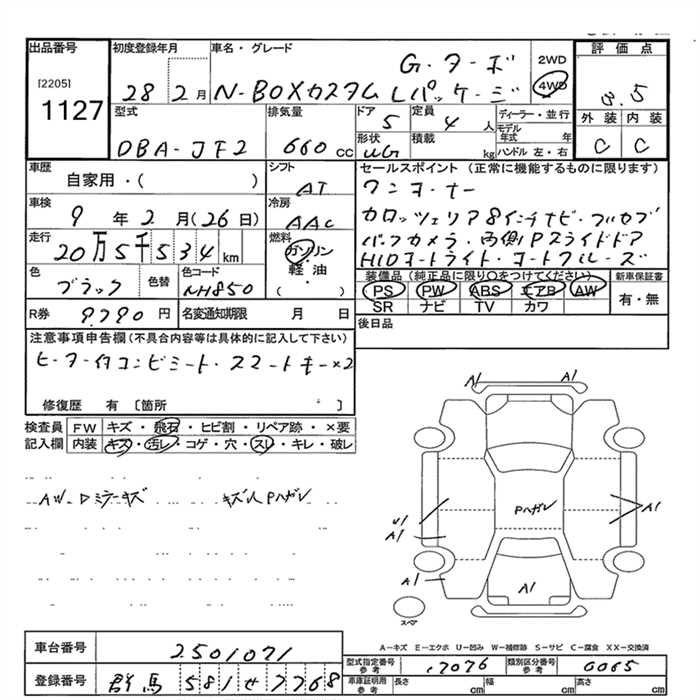 出品番号
[2205]
1127
初度登録年月
28 2月
車名・グレード
G・ターボ
N-BOXカスタム Lパッケージ
2WD
4WD
評価点
3.5
外装 内装
C C
型式
DBA-JF2
排気量
660 cc
ドア
5
定員
4 人
形状
UG
積載
kg
ディーラー・並行
モデル年式 年
ハンドル 左・右
車歴
自家用・( )
シフト
AT
車検
9 年 2 月(26日)
冷房
AAC
走行
20万5千534 km
燃料
ガソリン
軽・油
( )
色
ブラック
色替
色コード
NH850
R券
9,790 円
名変通知期限 月 日
セールスポイント(正常に機能するものに限ります)
ワンオーナー
カロッツェリア8インチナビ・フルセグ
バックカメラ・両側Pスライドドア
HIDオートライト・オートクルーズ
装備品(純正品に限り○をつけてください)
PS PW ABS エアB AW
SR ナビ TV カワ
新車保証書
有・無
後日品
注意事項申告欄(不具合内容等は具体的に記入して下さい)
ヒーター付コンビシート・スマートキー×2
修復歴 有 [箇所 ]
検査員記入欄
FW キズ・飛石・ヒビ割・リペア跡・×要
内装 キズ・汚レ・コゲ・穴・スレ・キレ・破レ
AW-Dミラーキズ
キズ人Pハガレ
A1 A1
Pハガレ
U1
A1
A1
A1
A1
スペア
A-キズ E-エクボ U-凹み W-補修跡 S-サビ C-腐食 XX-交換済
車台番号
2501071
登録番号
群馬 581せ7768
型式指定番号
参考
17076
類別区分番号
参考
0065
車庫証明用
参考
長さ cm
幅 cm
高さ cm